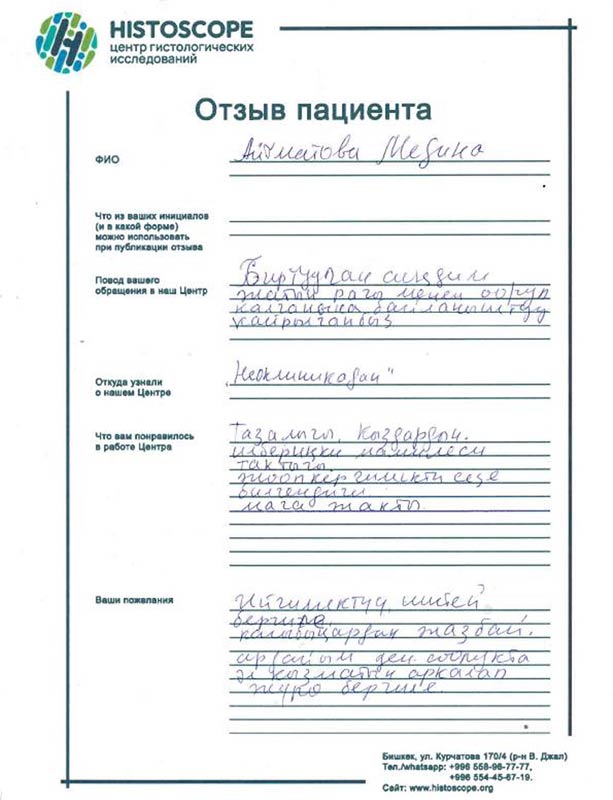 HISTOSCOPE
центр гистологических
исследований
Отзыв пациента
ФИО
Айтматова Медина
Что из ваших инициалов
(и в какой форме)
можно использовать
при публикации отзыва
Повод вашего
обращения в наш Центр
Бир тууган сиңдим
жатын рагы менен ооруп
калганына байланыштуу
кайрылганбыз
Откуда узнали
о нашем Центре
„Неоклиникадан"
Что вам понравилось
в работе Центра
Тазалыгы, кыздардын
мамилеси
тактыгы.
жоопкерчиликти сезе
билгендиги
мага жакты.
Ваши пожелания
Ийгиликтүү иштей
бергиле.
жазбай.
ар дайым ден соолукта
эл кызматын аркалап
жүрө бергиле.
Бишкек, ул. Курчатова 170/4 (р-н В. Джал)
Тел./whatsapp: +996 558-96-77-77,
+996 554-45-67-19.
Сайт: www.histoscope.org